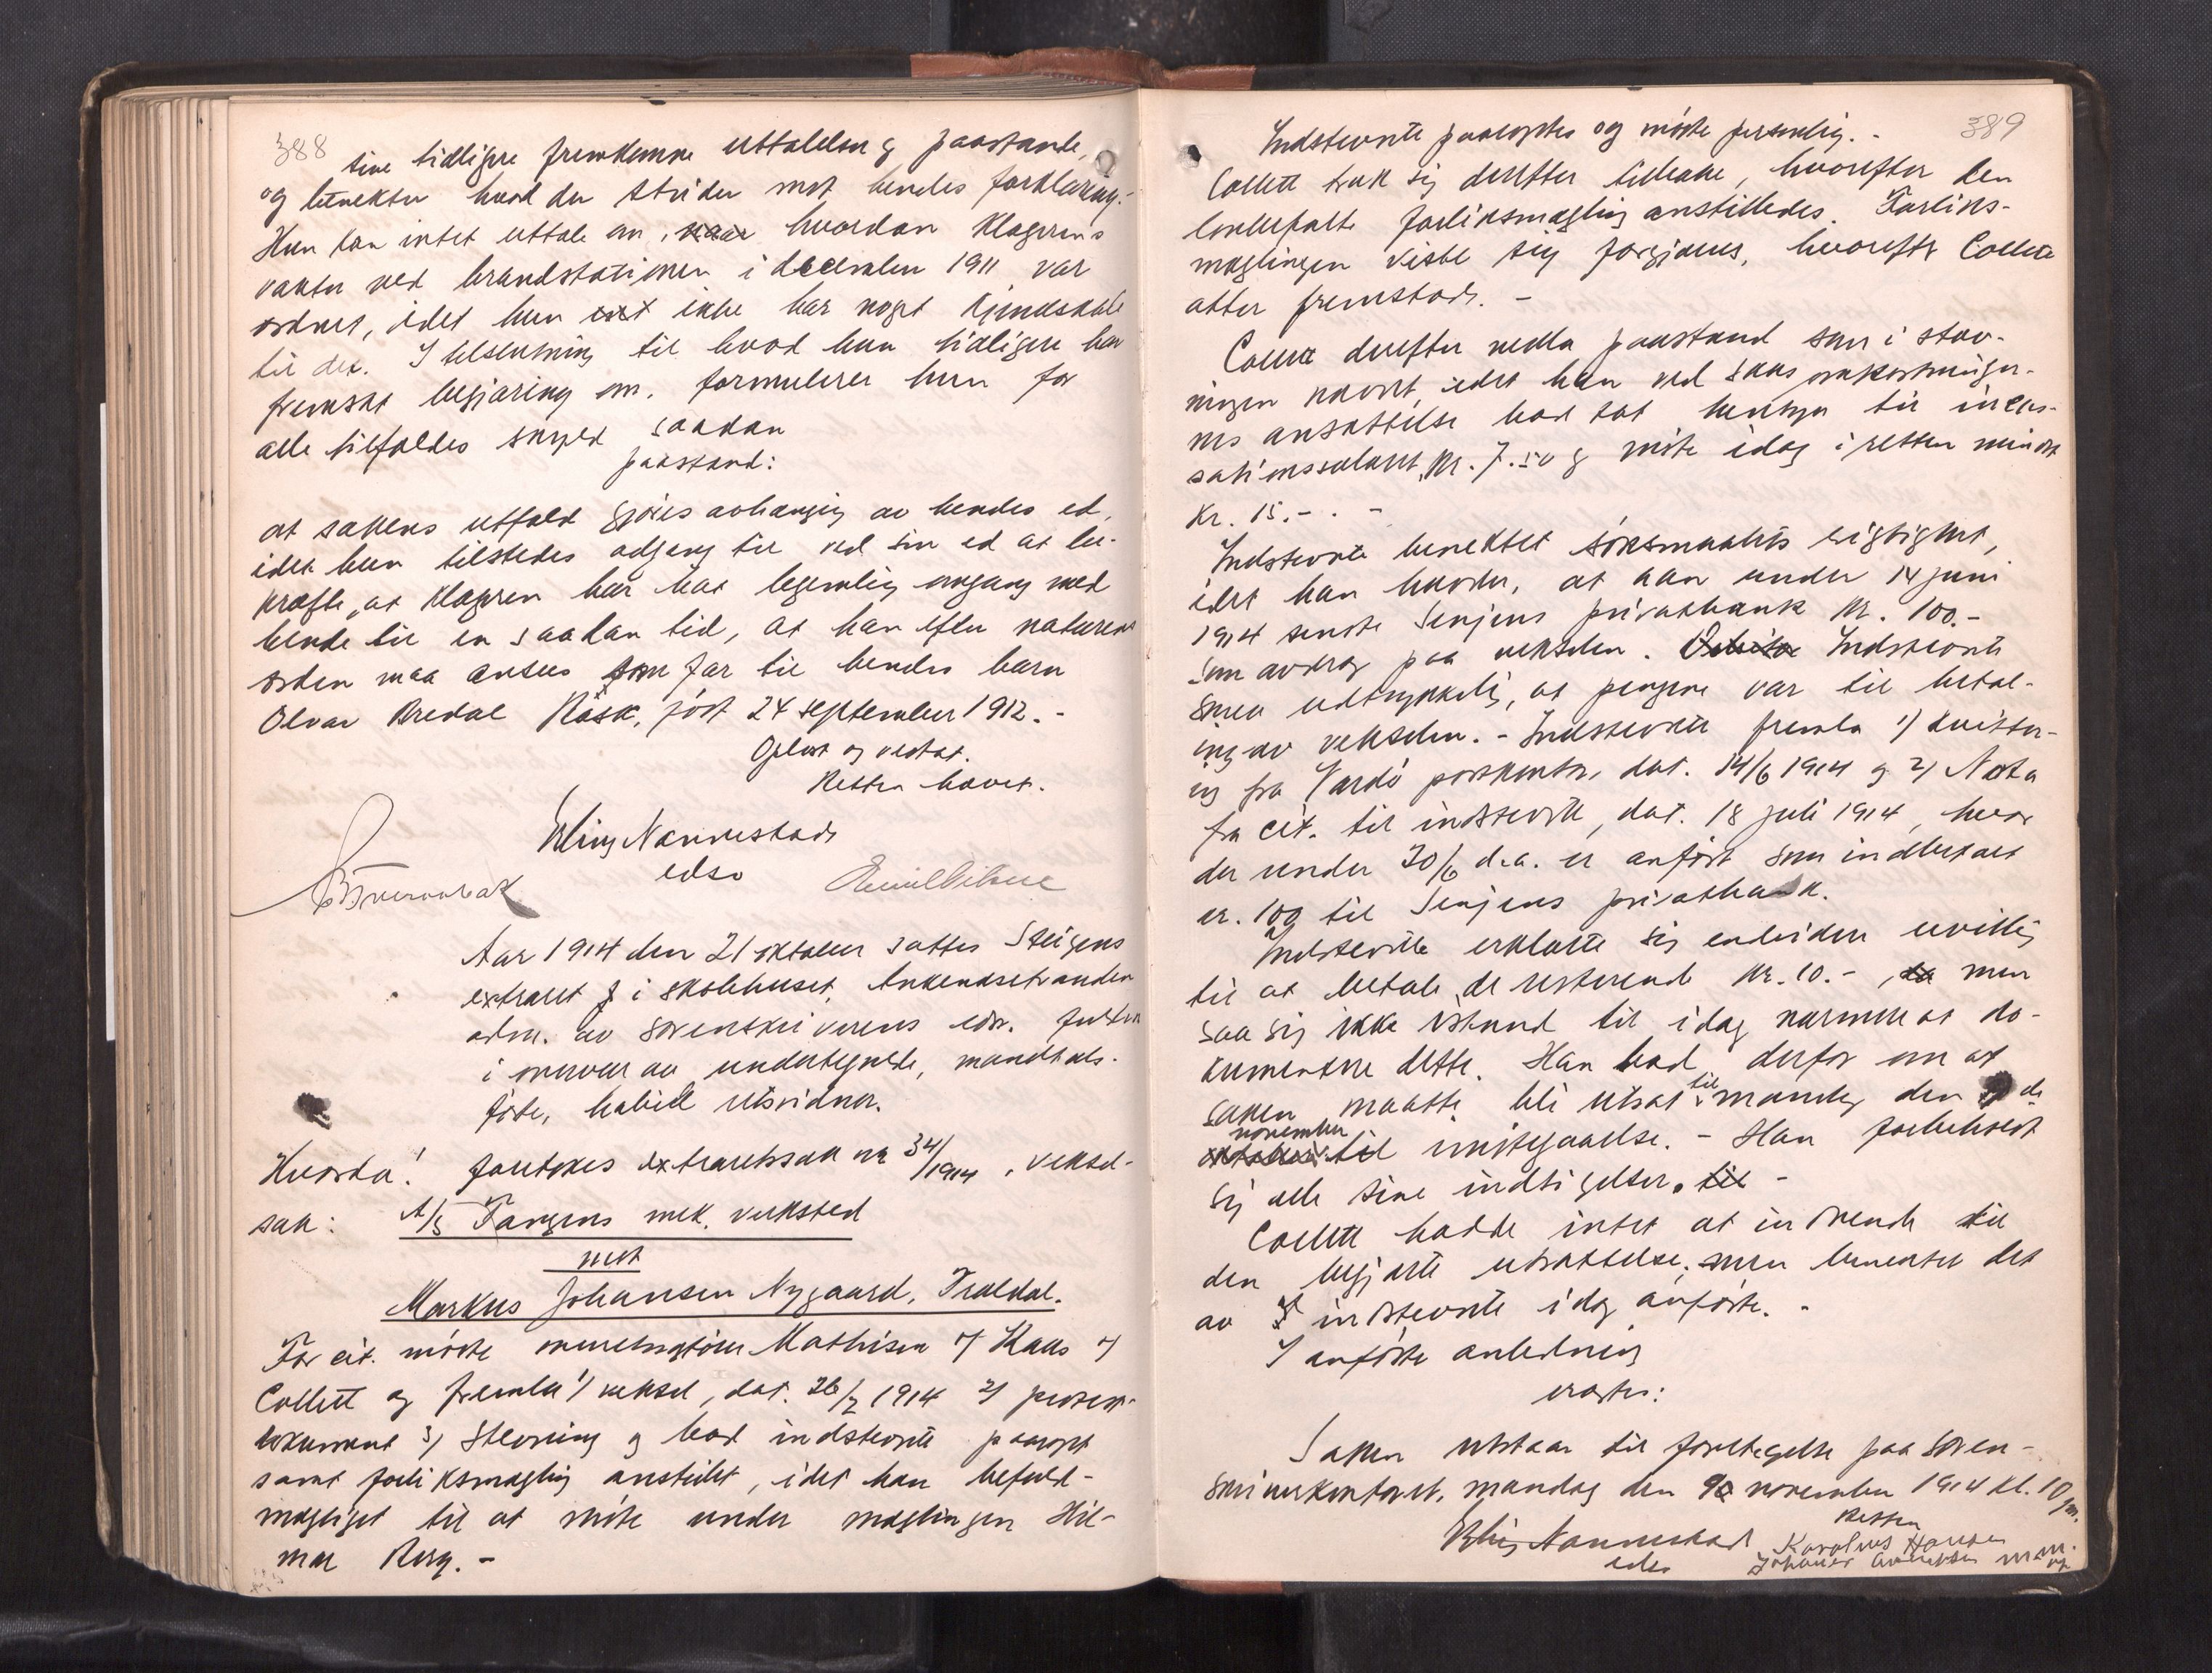 388
sine tidligere fremkomne uttalelser og paastande,
og benekter hvad der strider mot hendes forklaring.
Hun kan intet uttale om, naar hvordan klagerens
vakter ved brandstationen i december 1911 var
ordnet, idet hun int ikke har noget kjendskab
til det. I tilslutning til hvad hun tidligere har
fremsat begjæring om, formulerer hun for
alle tilfældes skyld saadan
paastand:
at sakens utfald gjøres avhængig av hendes ed,
idet hun tilstedes adgang til ved sin ed at be-
kræfte, at klageren har hat legemlig omgang med
hende til en saadan tid, at han efter naturens
orden maa ansees som far til hendes barn
Olvar Bredal Råsk, født 24 september 1912. -
Oplæst og vedtat.
Retten hævet.
Erling Nannestad
edsv
Aar 1914 den 21 oktober sattes Steigens
extraret i skolehuset,
adm. av sorenskriverens edsv. fuldm
i overvær av undertegnede, mandtals-
førte, habile retsvidner.
Hvorda! foretokes extraretssak nr 34/1914, veksel-
sak: A/S Tangens mek. verksted
mot
Markus Johansen Nygaard, Traldal.
For cit. møtte overretssakfører Mathisen of Kaas of
Collett og fremla 1) veksel, dat. 26/2 1914 2) protest-
dokument 3) Stevning og bad indstevnte paaropt
samt forliksmægling anstillet, idet han befuld-
mægtiget til at møte under mæglingen Hil-
mar Berg. -
389
Indstevnte paaroptes og møtte personlig. -
Collett trak sig derefter tilbake, hvorefter den
lovbefalte forliksmægling anstilledes. Forliks-
mæglingen viste sig forgjæves, hvorefter Collett
atter fremstod. -
Collett derefter nedla paastand som i stev-
ningen nævnt, idet han ved saksomkostninger-
nes ansættelse bad tat hensyn til inkas-
sationssalæret, kr. 7.50 og møte idag i retten mindst
kr. 15.- . -
Indstevnte benektet søksmaalets rigtighet,
idet han hævder, at han under 14 juni
1914 sendte Senjens privatbank kr. 100.-
som avdrag paa vekselen. Indstevnte
skrev udtrykkelig, at pengene var til betal-
ing av vekselen. - Indstevnte fremla 1) Kvitter-
ing fra Vardø postkontor, dat. 14/6 1914 og 2) Nota
fra cit. til indstevnte, dat. 18 juli 1914, hvor
der under 30/6 d.a. er anført som indbetalt
kr. 100 til Senjens privatbank.
Indstevnte erklærte sig endvidere uvillig
til at betale de resterende kr. 10.-, da men
saa sig ikke istand til idag nærmere at do-
kumentere dette. Han bad derfor om at
saken maatte bli utsat til mandag den 9 de
november
oktober til imøtegaaelse. - Han forbeholdt
sig alle sine indsigelser. til -
Collett hadde intet at indvende til
den begjærte utsættelse, men benektet det
av indstevnte idag anførte. -
I anførte anledning
eragtes:
Saken utstaar til foretagelse paa soren-
skriverkontoret, mandag den 9 november 1914 kl. 10 fm.
Retten
Erling Nannestad Karolius Hansen
edsv